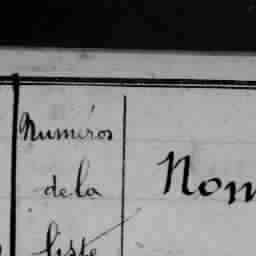 Numéros
de la
liste
Nom